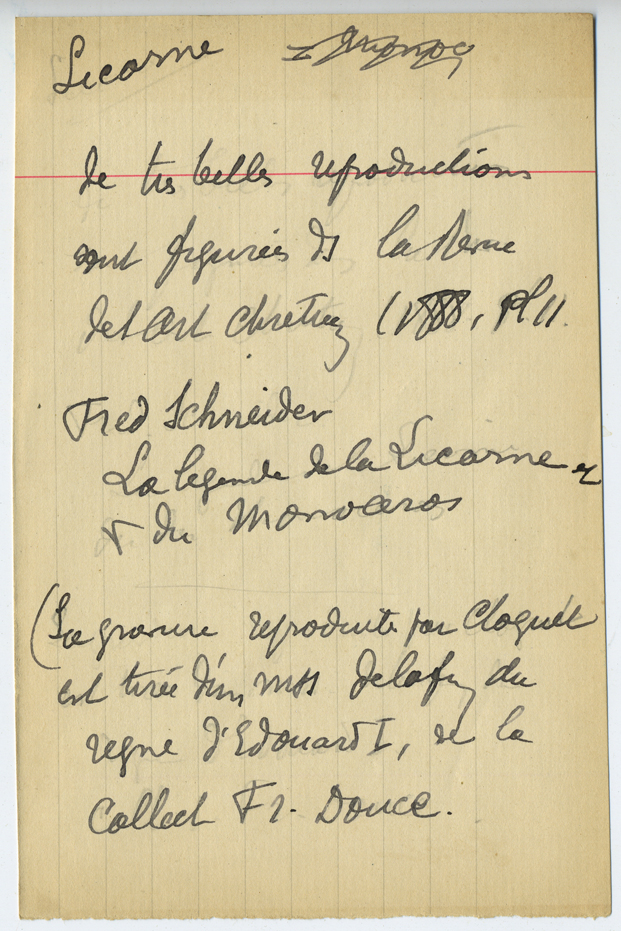 Licorne
de tres belles reproductions
sont figurées ds la Revue
de l'Art chretien (1888, Pl 11.
Fred Schneider
La legende de la Licorne et
& du Monoceros
(La gravure reproduite par Cloquet
est tirée d'un mss de la fin du
regne d'Edouard I, de la
Collect Fr. Douce.